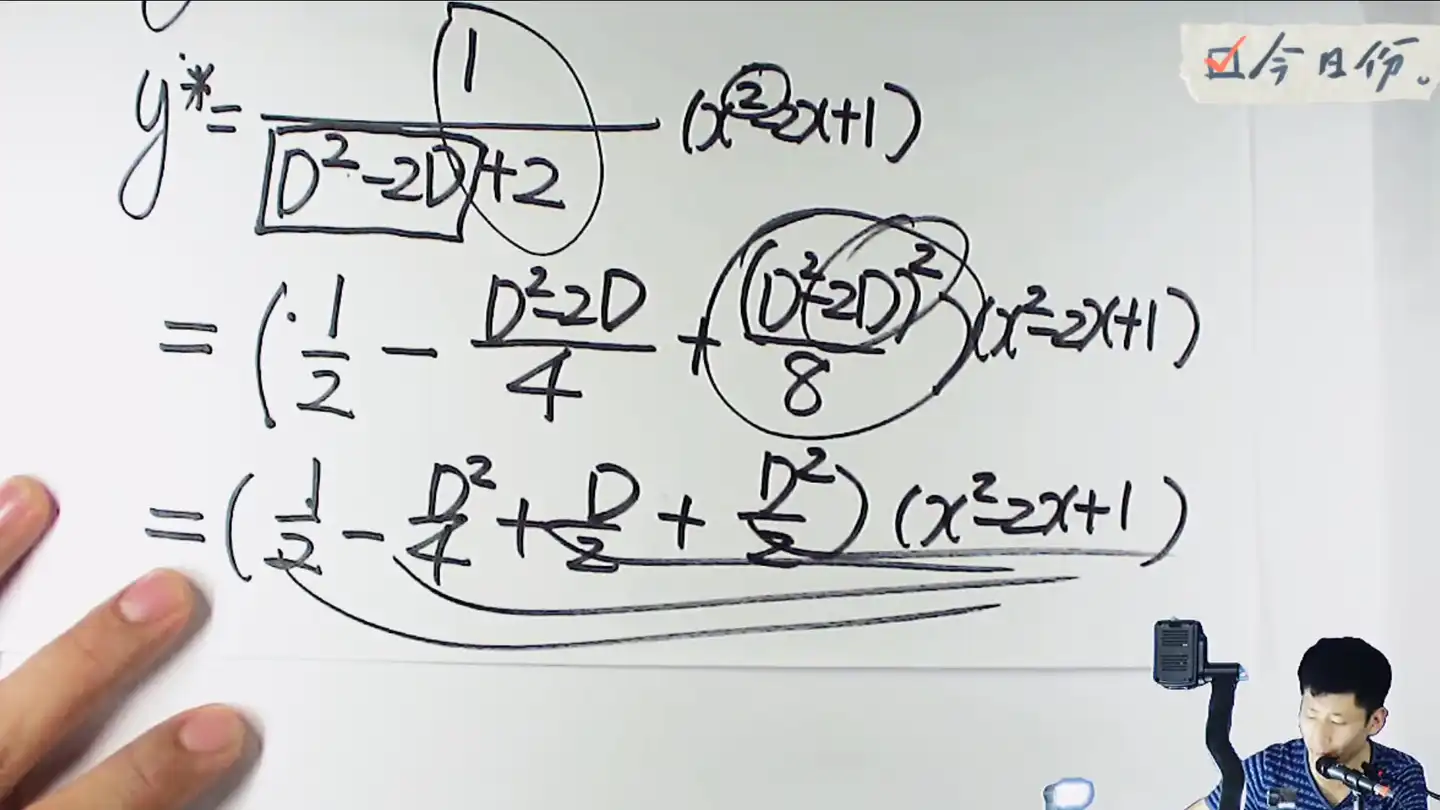 今日份。
y* = 1/(D²-2D+2) (x²-2x+1)
= (1/2 - (D²-2D)/4 + (D²-2D)²/8 (x²-2x+1)
= (1/2 - D²/4 + D/2 + D²/2) (x²-2x+1)